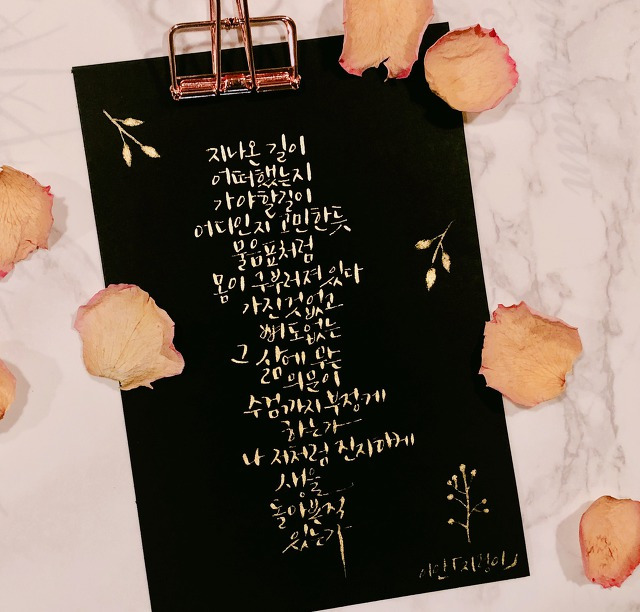 지나온 길이
어떠했는지
가야할길이
어디인지 고민한듯
물음표처럼
몸이 구부러져 있다
가진것 없고
뼈도없는
그 삶에 무슨
의문이
수염까지 부정케
하는가
나 저처럼 진지하게
생을
돌아본적
있는가